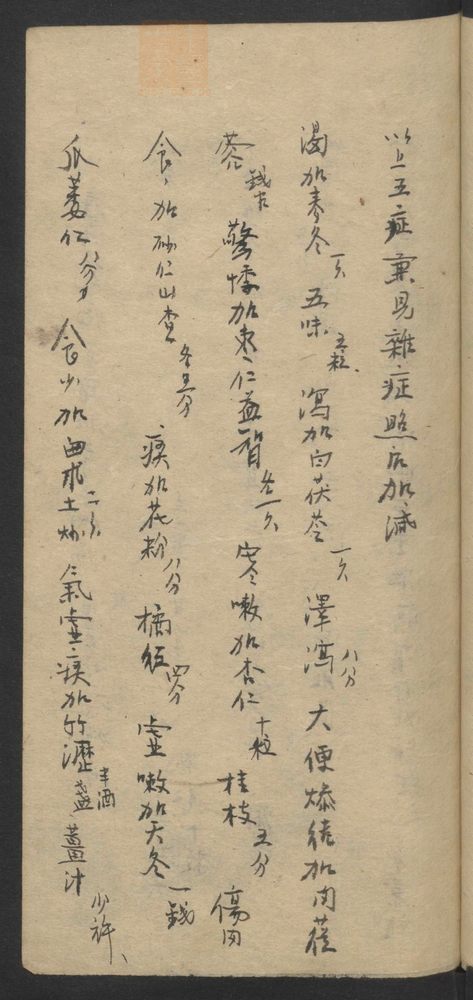 以上五症兼見雜症照后加減
渴加麦冬一久五味五粒瀉加白茯苓一久澤瀉八分大便燥結加肉蓯
蓉錢半驚悸加枣仁益智各一久寒嗽加杏仁十粒桂枝五分傷肉
食加砂仁山查各五分痰加花粉八分橘紅四分虛嗽加天冬一錢
瓜蔞仁八分食少加白术土炒二久氣虛痰加竹瀝半酒盞薑汁少許